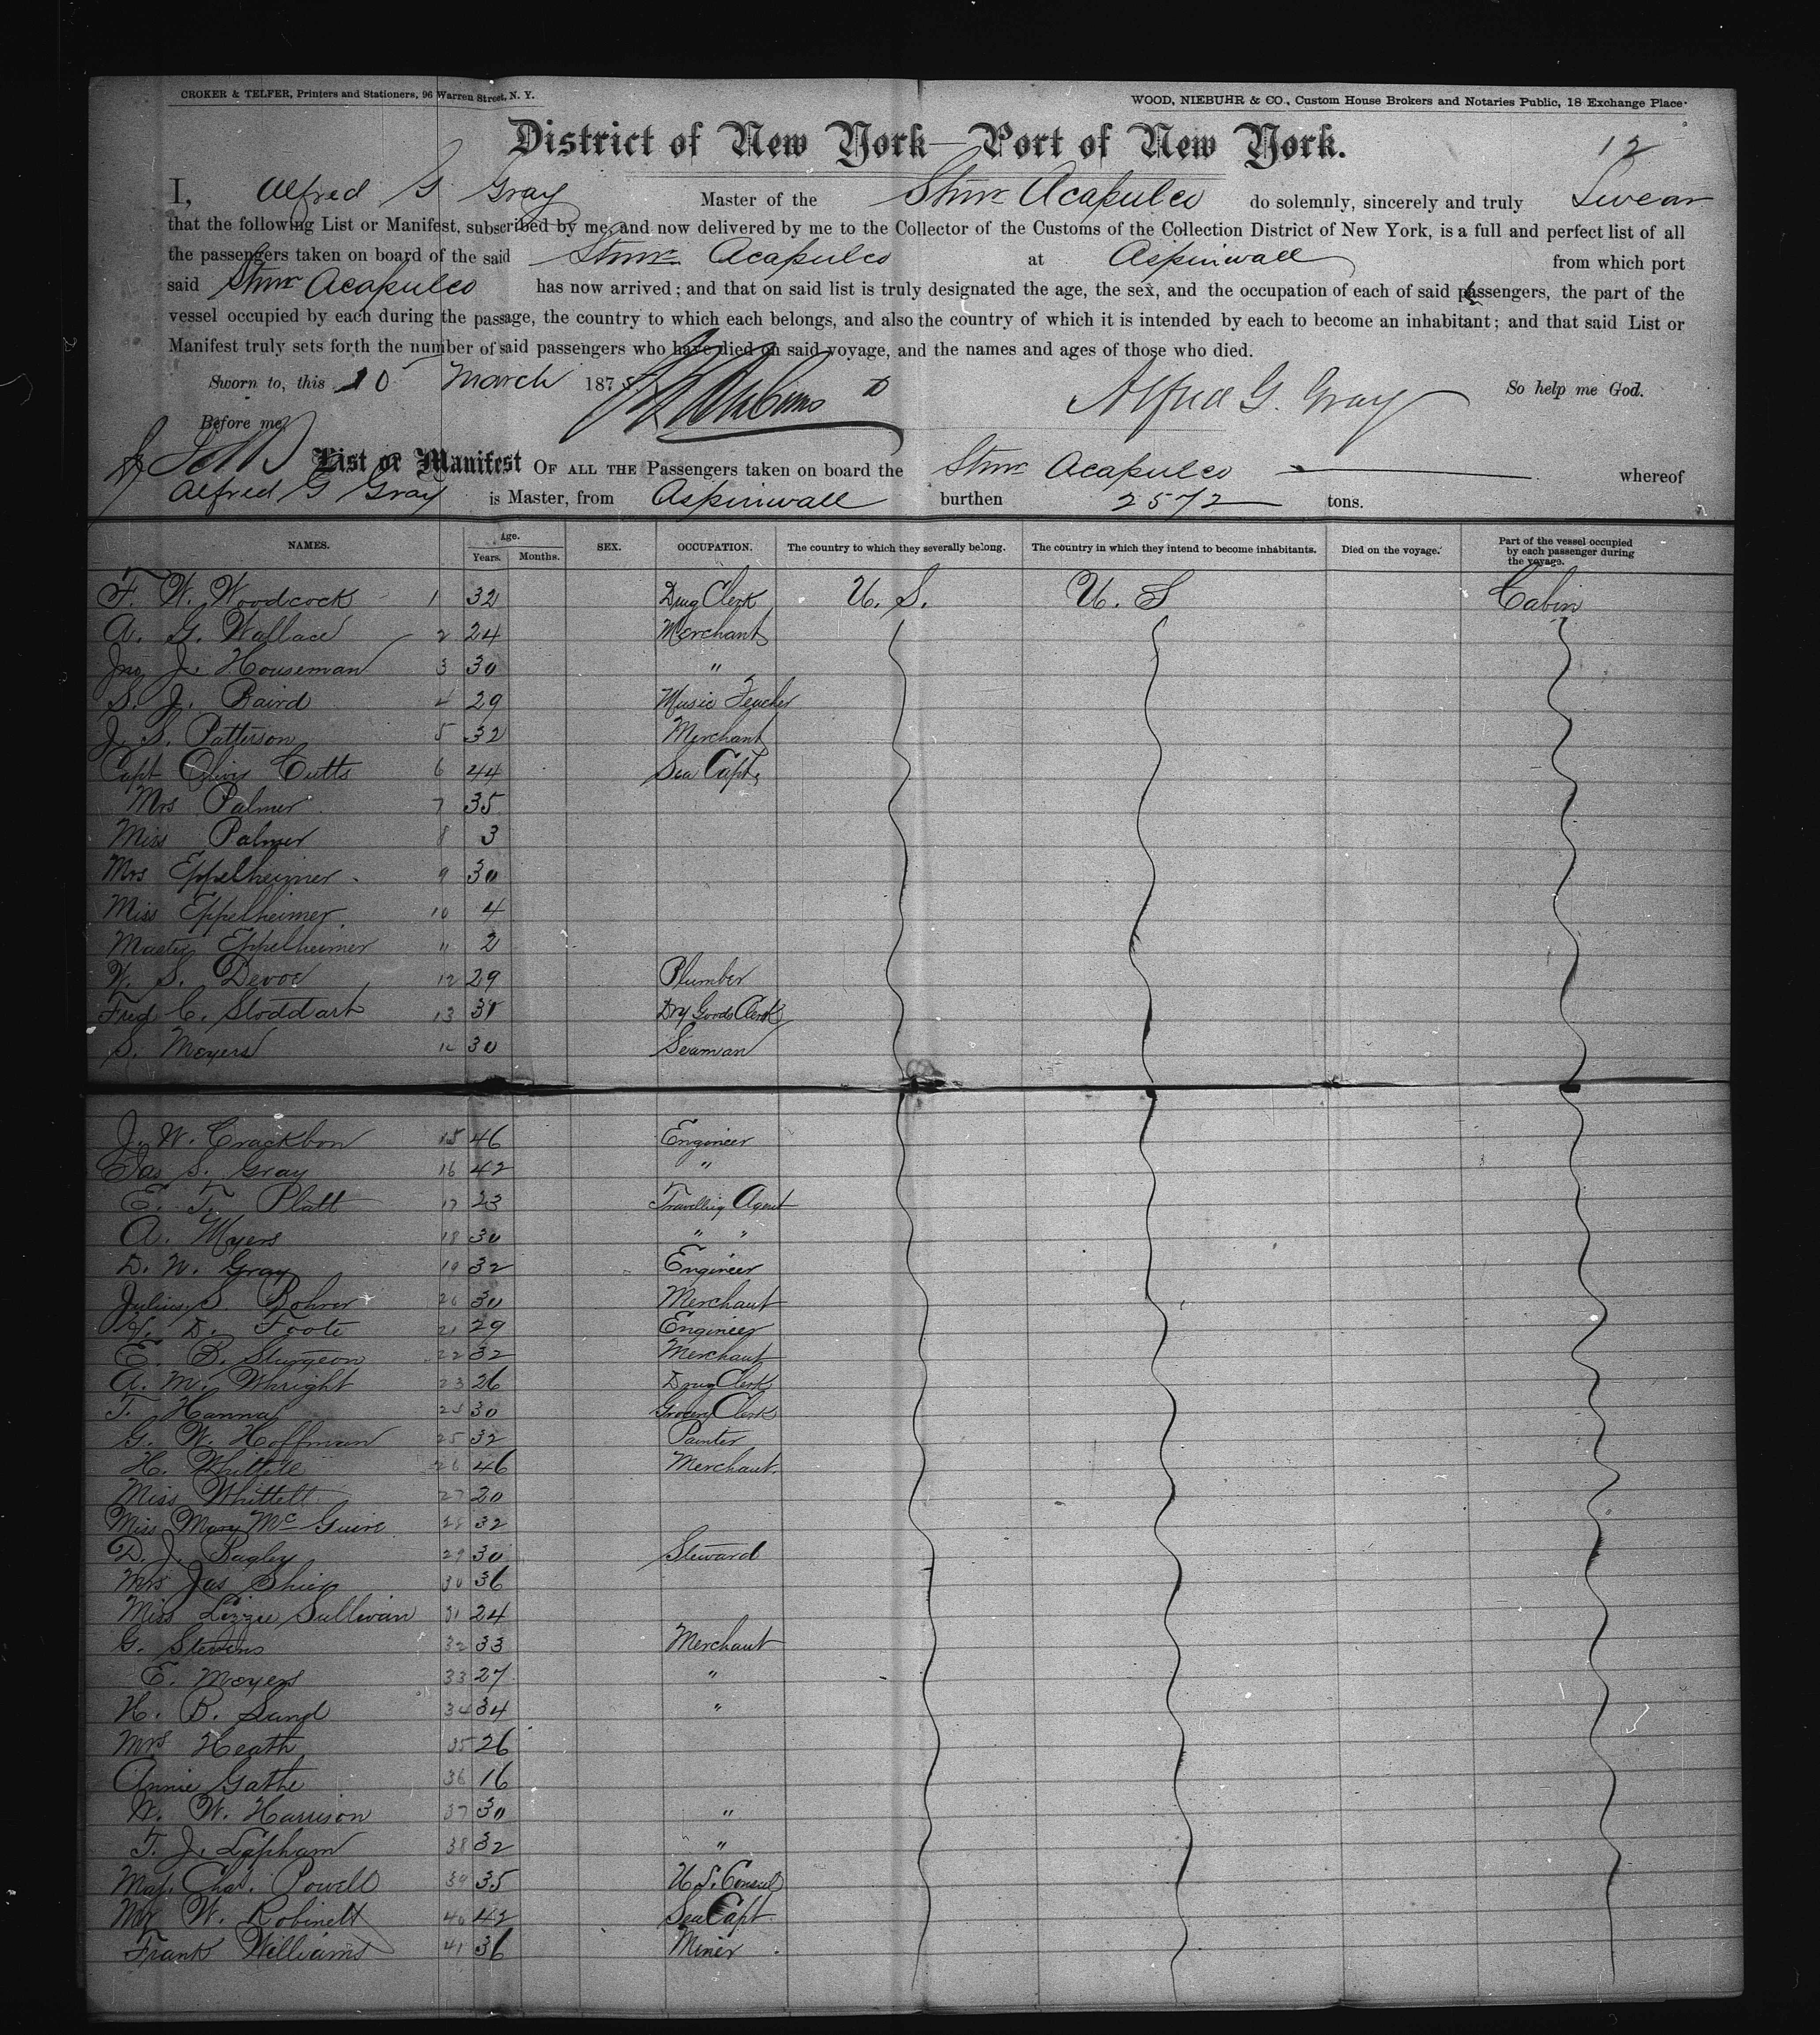 CROKER & TELFER, Printers and Stationers, 96 Warren Street, N. Y.
WOOD, NIEBUHR & CO., Custom House Brokers and Notaries Public, 18 Exchange Place.
District of New York—Port of New York.
12
I, Alfred G Gray Master of the Stmr Acapulco do solemnly, sincerely and truly Swear
that the following List or Manifest, subscribed by me, and now delivered by me to the Collector of the Customs of the Collection District of New York, is a full and perfect list of all
the passengers taken on board of the said Stmr Acapulco at Aspinwall from which port
said Stmr Acapulco has now arrived; and that on said list is truly designated the age, the sex, and the occupation of each of said passengers, the part of the
vessel occupied by each during the passage, the country to which each belongs, and also the country of which it is intended by each to become an inhabitant; and that said List or
Manifest truly sets forth the number of said passengers who have died on said voyage, and the names and ages of those who died.
Sworn to, this 10 March 1875. Alfred G. Gray So help me God.
Before me
List or Manifest OF ALL THE Passengers taken on board the Stmr Acapulco whereof
Alfred G Gray is Master, from Aspinwall burthen 2572 tons.
NAMES. Age. Years. Months. SEX. OCCUPATION. The country to which they severally belong. The country in which they intend to become inhabitants. Died on the voyage. Part of the vessel occupied by each passenger during the voyage.
F. W. Woodcock 1 32 Drug Clerk U. S. U. S Cabin
A. G. Wallace 2 24 Merchant
Jno J. Houseman 3 30 "
S. J. Baird 4 29 Music Teacher
J. S. Patterson 5 32 Merchant
Capt Cutts 6 44 Sea Capt.
Mrs Palmer 7 35
Miss Palmer 8 3
Mrs Eppelheimer 9 30
Miss Eppelheimer 10 4
Master Eppelheimer 11 2
W. S. Devoe 12 29 Plumber
Fred C. Stoddart 13 31 Dry Goods Clerk
S. Moyers 14 30 Seaman
J. W. Crackbon 15 46 Engineer
Jas S. Gray 16 42 "
E. T. Platt 17 23 Travelling Agent
A. Myers 18 30 " "
D. W. Gray 19 32 Engineer
Julius S. Bohrer 20 30 Merchant
D. Foote 21 29 Engineer
E. B. Sturgeon 22 32 Merchant
A. M. Whright 23 26 Drug Clerk
T. Hanna 24 30 Grocery Clerk
G. W. Hoffman 25 32 Painter
H. Whittell 26 46 Merchant.
Miss Whittell 27 20
Miss Mary Mc Guire 28 32
D. J. Bagley 29 30 Steward
Mrs Jas 30 36
Miss Lizzie Sullivan 31 24
G. Stevens 32 33 Merchant
E. Moyers 33 27 "
H. B. Sand 34 34 "
Mrs Heath 35 26
Annie Gathe 36 16
W. W. Harrison 37 30 "
T. J. Lapham 38 32 "
Maj. Chas. Powell 39 35 U S. Consul
W. Robinett 40 42 Sea Capt.
Frank Williams 41 36 Miner